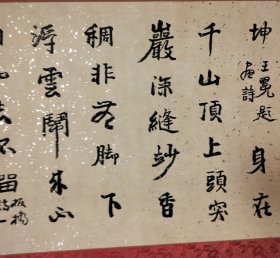 坤 王冕題
画詩
身在
千山頂上頭突
巖深縫妙香
稠非無脚下
浮雲鬧來不
去不留 板橋
詩一